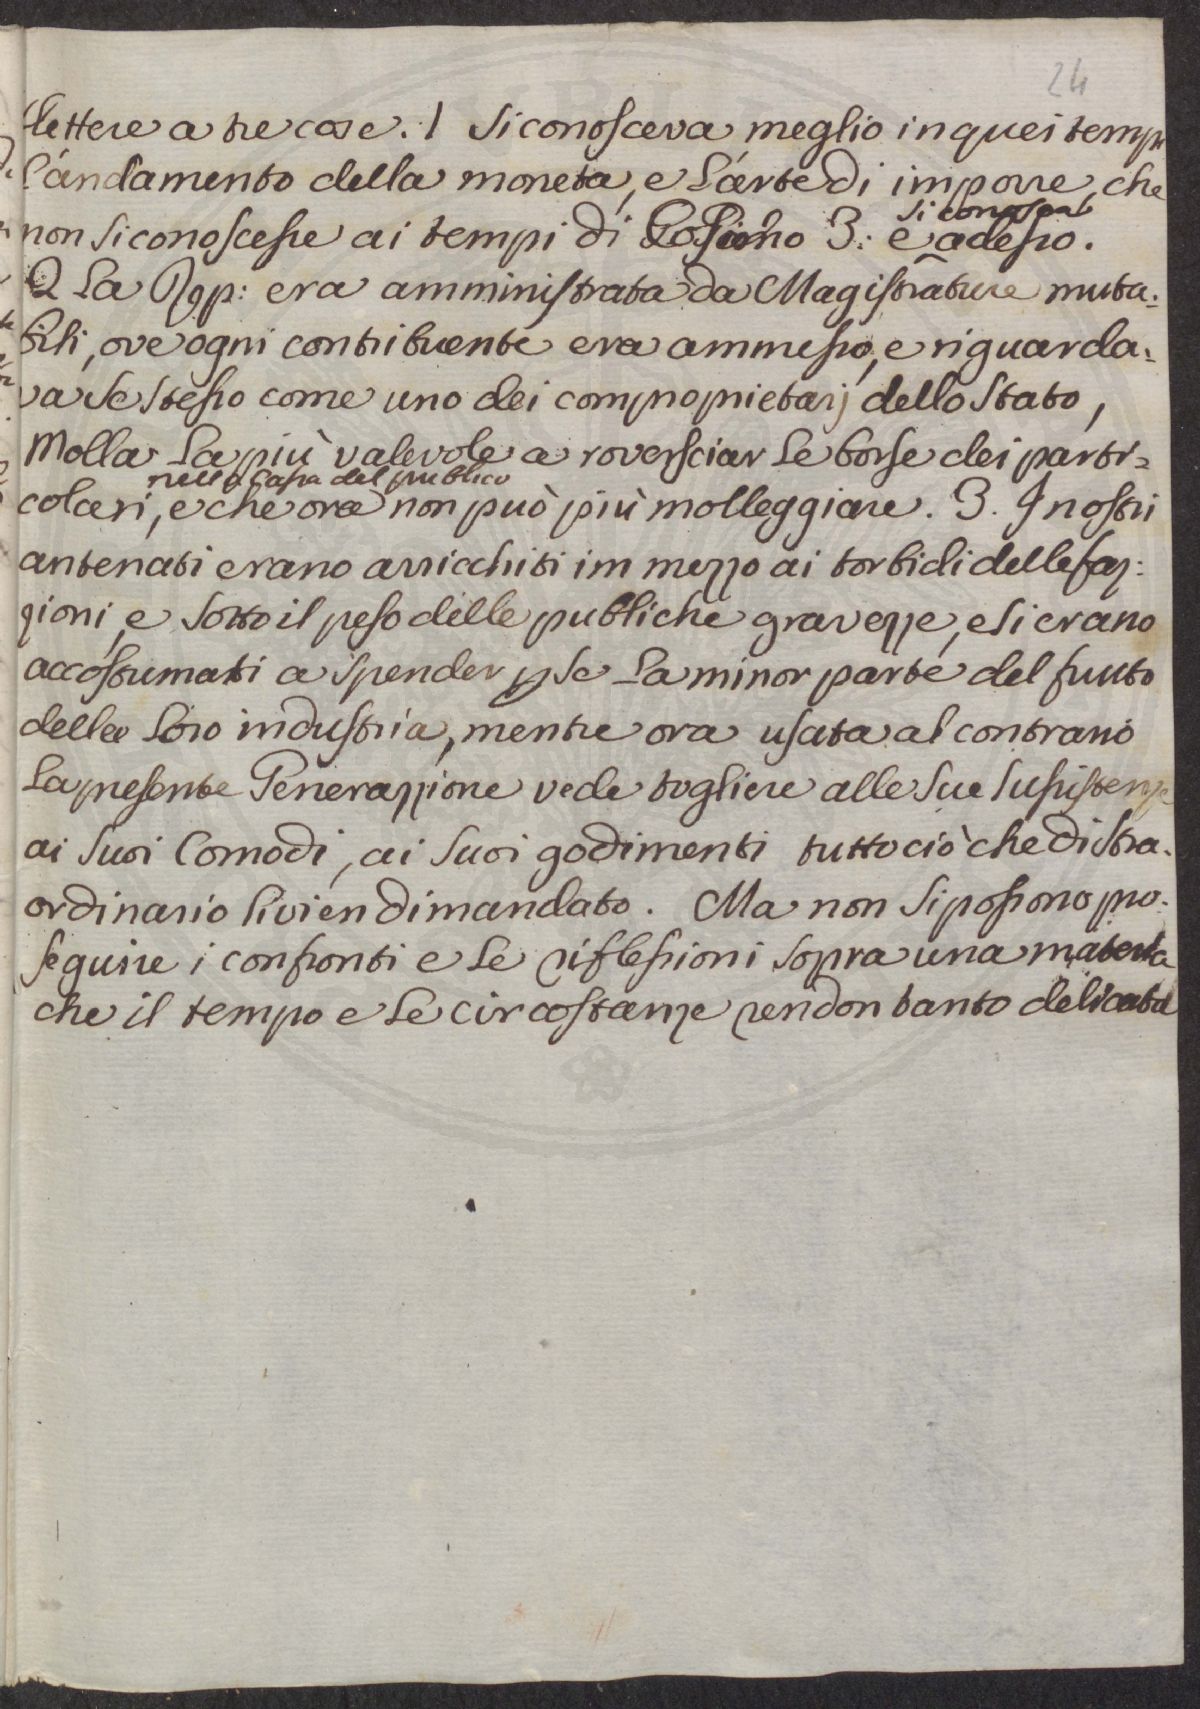 24
flettere a tre cose. 1 Si conosceva meglio in quei temp
l'andamento della moneta, e l'arte di imporre, che
non si conoscesse ai tempi di Cosimo 3: e si conosca adesso.
2 La Rep: era amministrata da Magistrature muta:
bili, ove ogni contribuente era ammesso, e riguarda:
va se stesso come uno dei comproprietarj dello Stato,
Molla la più valevole a roversciar le borse dei parti=
colari, nella Cassa del publico e che ora non può più molleggiare. 3. I nostri
antenati erano arricchiti im mezzo ai torbidi delle faz:
zioni, e sotto il peso delle publiche gravezze, e si erano
accostumati a spender p se la minor parte del frutto
della loro industria, mentre ora usata al contrario
la presente Generazzione vede togliere alle sue sussistenze
ai suoi Comodi, ai suoi godimenti tutto ciò che di stra.
ordinario li vien dimandato. Ma non si possono pro.
seguire i confronti e le riflessioni sopra una materia
che il tempo e le circostanze rendon tanto delicata